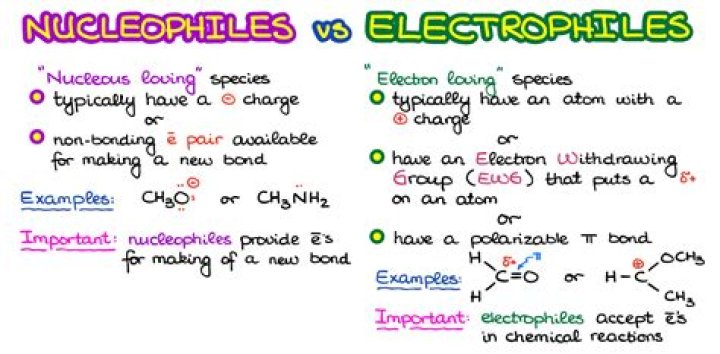 NUCLEOPHILES vs ELECTROPHILES
"Nucleous loving" species
typically have a ⊖ charge
or
non-bonding ē pair available
for making a new bond
Examples: CH₃Ö:⊖ or CH₃N̈H₂
Important: nucleophiles provide ē's
for making of a new bond
"Electron loving" species
typically have an atom with a
⊕ charge
or
have an Electron Withdrawing
Group (EWG) that puts a δ+
on an atom
or
have a polarizable π bond
Examples: H H C=O δ+ π or H-C ⊕ OCH₃ CH₃
Important: electrophiles accept ē's
in chemical reactions